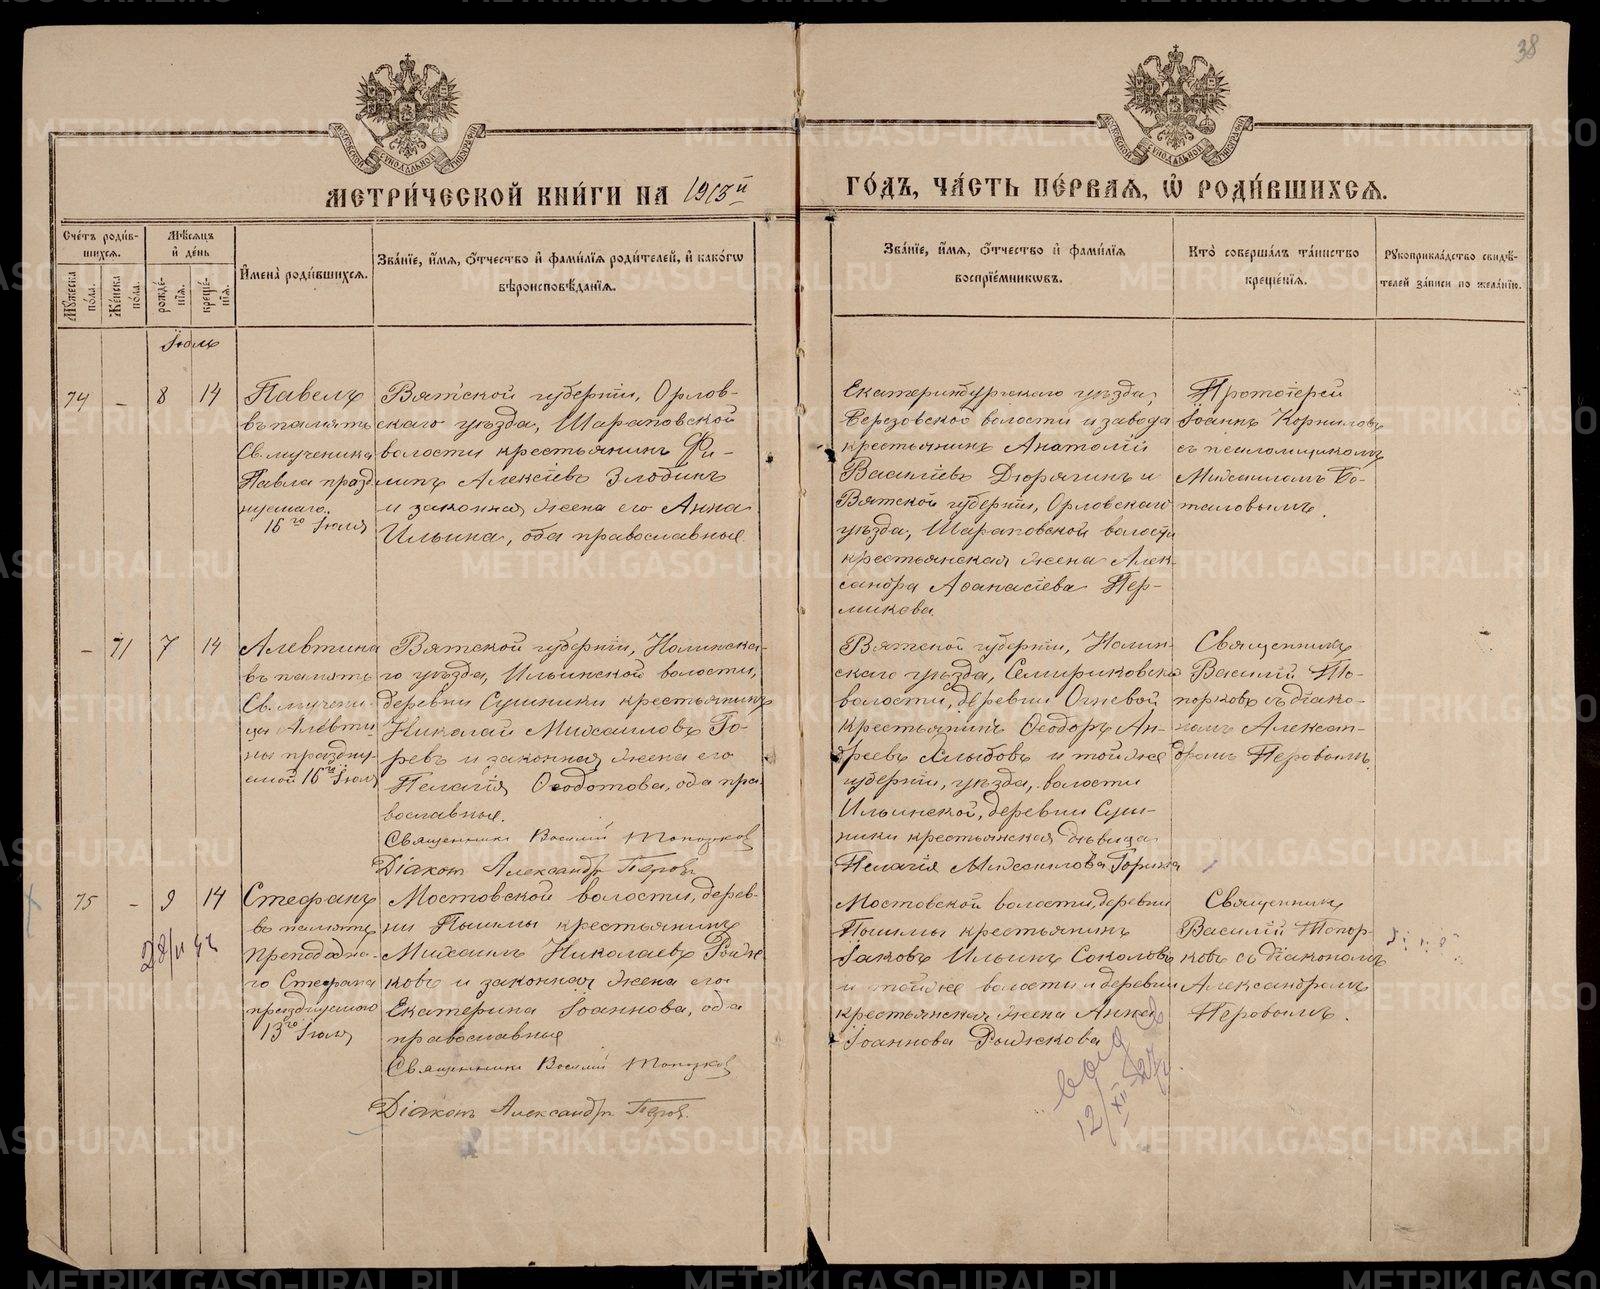 38
МЕТРИ́ЧЕСКОЙ КНИ́ГИ НА 1913й
ГО́ДЪ, ЧА́СТЬ ПЕ́РВАѦ, Ѡ҆ РОДИ́ВШИХСѦ.
Сче́тъ роди́в-
шихсѧ.
Мѣ́сѧцъ
и҆ де́нь
И҆мена̀ роди́вшихсѧ.
Зва́нїе, и҆́мѧ, ѻ҆́тчество и҆ фами́лїѧ роди́телей, и҆ како́гѡ
вѣроисповѣ́данїѧ.
Мꙋ́жеска
по́ла.
Же́нска
по́ла.
рожде́-
нїѧ.
креще́-
нїѧ.
Зва́нїе, и҆́мѧ, ѻ҆́тчество и҆ фами́лїѧ
воспрїе́мникѡвъ.
Кто̀ соверша́лъ та́инство
креще́нїѧ.
Рꙋкоприкла́дство свидѣ́-
телей за́писи по жела́нїю.
Іюль
74 – 8 14
Павелъ
въ память
Св. мученика
Павла празд
нуемаго
16го Іюля
Вятской губерніи, Орлов-
скаго уѣзда, Шараповской
волости крестьянинъ Фи-
липъ Алексіевъ Злобинъ
и законная жена его Анна
Ильина, оба православные.
Екатеринбургскаго уѣзда,
Березовской волости и завода
крестьянинъ Анатолій
Василіевъ Дюрягинъ и
Вятской губерніи, Орловскаго
уѣзда, Шараповской волости
крестьянская жена Алек-
сандра Аѳанасіева Пер-
микова
Протоіерей
Іоаннъ Корниловъ
съ псаломщикомъ
Михаиломъ
– 71 7 14
Алевтина
въ память
Св. мучени-
цы Алевти
ны праздну-
емой 16го Іюля
Вятской губерніи, Нолинска-
го уѣзда, Ильинской волости,
деревни Сушники крестьянинъ
Николай Михаиловъ Го-
ревъ и законная жена его
Пелагія Ѳеодотова, оба пра-
вославные.
Священникъ Василій Топорковъ
Діаконъ Александръ Перовъ
Вятской губерніи, Нолин-
скаго уѣзда, Семириковской
волости, деревни Огневой
крестьянинъ Ѳеодоръ Ан-
дреевъ Слыбовъ и той же
губерніи, уѣзда, волости
Ильинской, деревни Суш-
ники крестьянская дѣвица
Пелагія Михаилова Горина
Священникъ
Василій То-
порковъ съ діако-
номъ Алексан-
дромъ Перовымъ.
75 – 9 14
Стефанъ
въ память
преподобна-
го Стефана
празднуемаго
13го Іюля
Мостовской волости, дерев-
ни Пошмы крестьянинъ
Михаилъ Николаевъ Рыж
ковъ и законная жена его
Екатерина Іоаннова, оба
православные
Священникъ Василій Топорковъ
Діаконъ Александръ Перовъ.
Мостовской волости, деревни
Пошмы крестьянинъ
Іаковъ Ильинъ Соколовъ
и той же волости и деревни
крестьянская жена Анна
Іоаннова Рыжкова
Священникъ
Василій Топор-
ковъ съ діакономъ
Александромъ
Перовымъ.